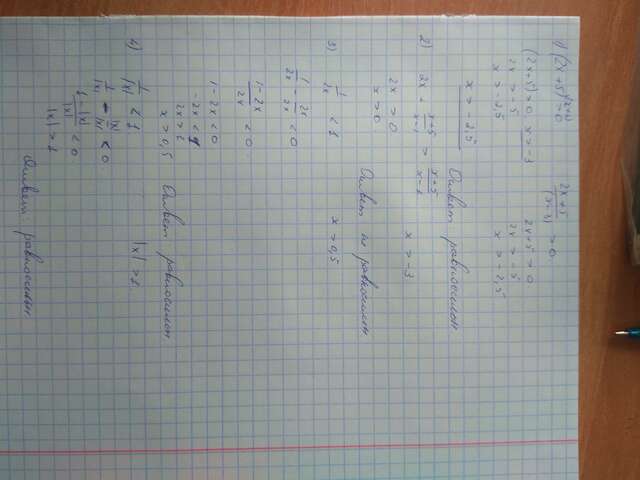 1) (2x+5)(x+3) > 0    (2x+5)/(x+3) > 0
(2x+5) > 0  x > -3    2x+5 > 0
2x > -5    2x > -5
x > -2,5    x > -2,5
x > -2,5    Ответ равносилен
2) 2x + (x+5)/(x-1) > (x+5)/(x-1)    x > -3
2x > 0
x > 0    Ответ не равносилен
3) 1/2x < 1    x > 0,5
1/2x - 2x/2x < 0
(1-2x)/2x < 0
1-2x < 0
-2x < 1
2x > 1
x > 0,5    Ответ равносилен
4) 1/|x| < 1    |x| > 1
1/|x| - |x|/|x| < 0
(1-|x|)/|x| < 0
|x| > 1
Ответ: равносилен